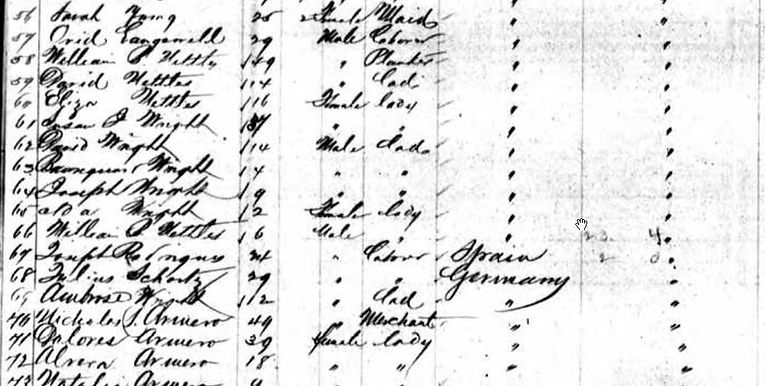 56 Sarah Young 25 Female Maid " "
57 29 Male Laborer " "
58 William P. Nettles 49 " Planter " "
59 David Nettles 14 " Lad " "
60 Eliza Nettles 16 Female lady " "
61 Susan Wright 37 " " " "
62 David Wright 14 Male Lad " "
63 Wright 14 " " " "
64 Joseph Wright 9 " " " "
65 Ada Wright 12 Female lady " "
66 William P Nettles 6 Male " " 4 "
67 Joseph Rodrigues 24 " Laborer Spain 2 "
68 Julius 29 " " Germany "
69 Ambrose Wright 12 " Lad " "
70 Nicholas J. Armero 49 " Merchant " "
71 Dolores Armero 39 female lady " "
72 Armero 18 " " " "
73 Natalia Armero 9